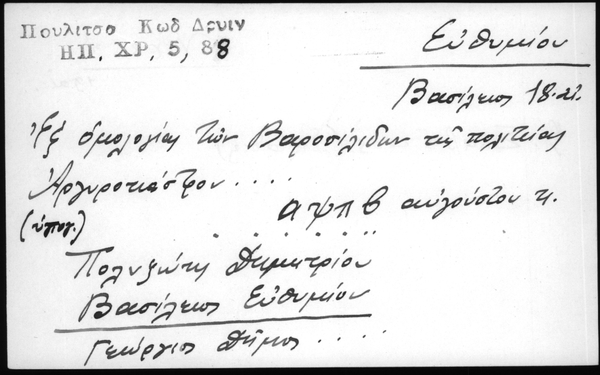 Πουλιτσο Κωδ Δρυιν
ΗΠ. ΧΡ. 5, 88
Εὐθυμίου
Βασίλειος 18.22.
Ἐξ ὁμολογίας τῶν Βαροσιλίδων τῆς πολιτείας
Ἀργυροκάστρου . . . .
αψπβ αὐγούστου
(ὑπογ.) . . . . . .
Πολυζώης Δημητρίου
Βασίλειος Εὐθυμίου
Γεώργιος Δῆμος . . . .